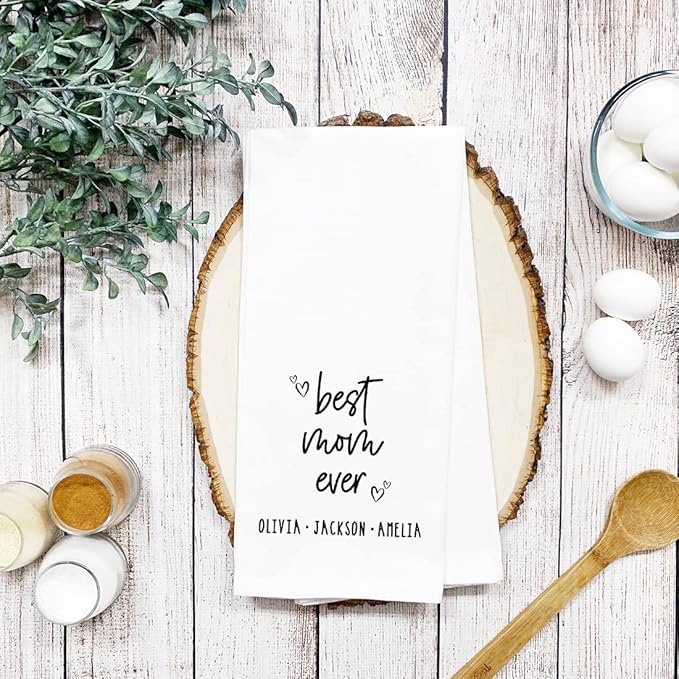 best
mom
ever
OLIVIA · JACKSON · AMELIA